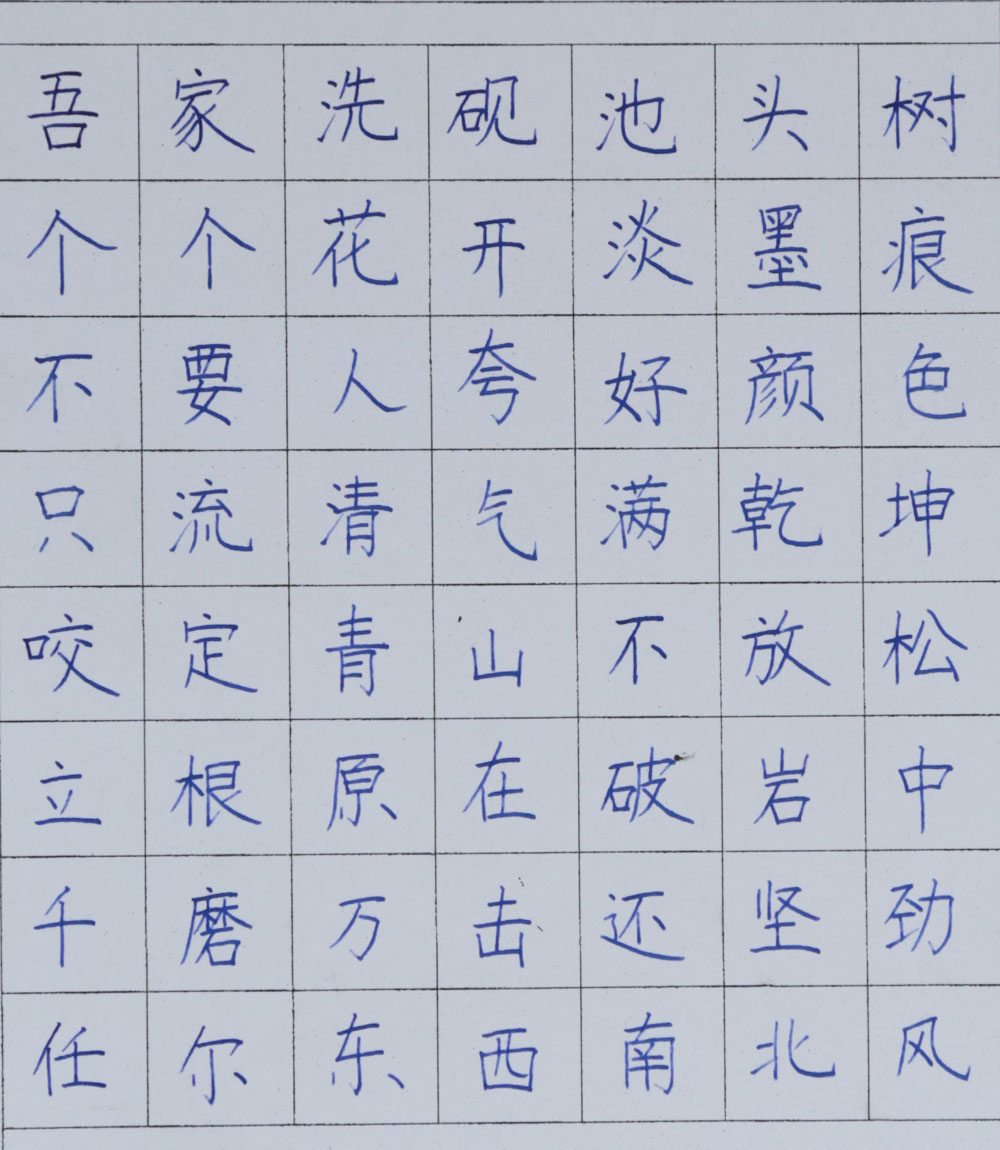 吾家洗砚池头树
个个花开淡墨痕
不要人夸好颜色
只流清气满乾坤
咬定青山不放松
立根原在破岩中
千磨万击还坚劲
任尔东西南北风